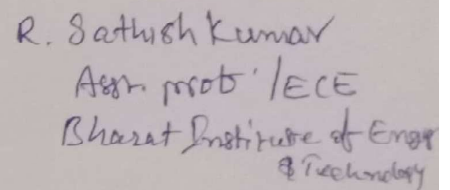 R. Sathish Kumar
Asst. prof /ECE
Bharat Institute of Engg
& Technology